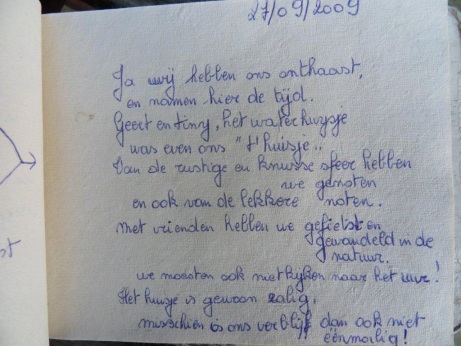 27/09/2009
Ja wij hebben ons onthaast,
en namen hier de tijd.
Geert en Tiny, het waterhuysje
was even ons "t'huisje"..
Van de rustige en knusse sfeer hebben
we genoten
en ook van de lekkere noten.
Met vrienden hebben we gefietst en
gewandeld in de
natuur.
we moesten ook niet kijken naar het uur!
Het huisje is gewoon zalig,
misschien is ons verblijf dan ook niet
eenmalig!